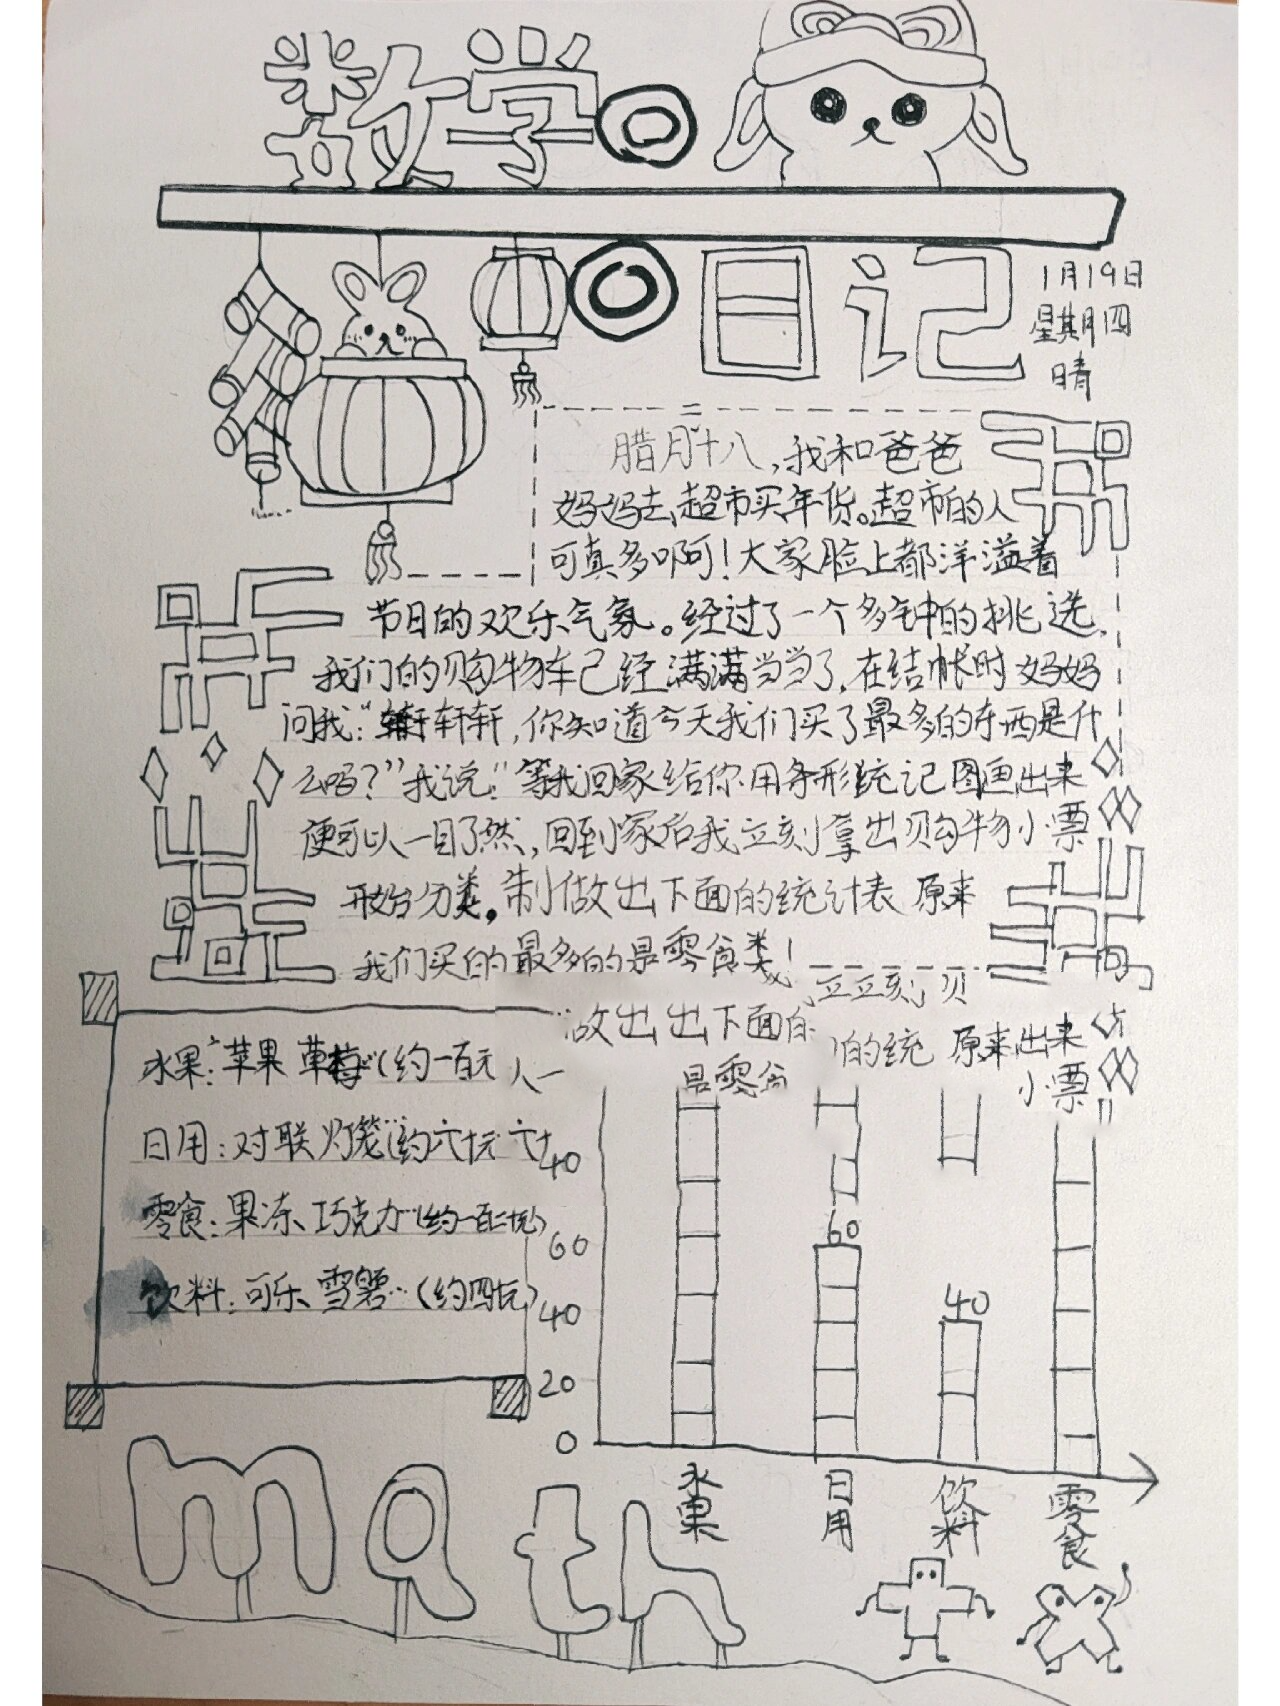 数学
日记
1月19日
星期四
晴
腊月十八,我和爸爸
妈妈去超市买年货。超市的人
可真多啊!大家脸上都洋溢着
节日的欢乐气氛。经过了一个多钟的挑选,
我们的购物车已经满满当当了,在结帐时妈妈
问我:“轩轩,你知道今天我们买了最多的东西是什
么吗?”我说:“等我回家给你用条形统记图画出来
便可以一目了然,回到家后我立刻拿出购物小票
开始分类。制做出下面的统计表 原来
我们买的最多的是零食类!
立立刻 贝
做出出下面的 的统 原来出来
是零食 小票
水果:苹果 草莓(约一百元 人一
日用:对联灯笼(约六十元 六十
零食:果冻、巧克力(约一百二十元)
饮料:可乐、雪碧…(约四十元)
40
60
40
20
0
60
40
水果
日用
饮料
零食
math